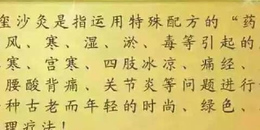 玺沙灸是指运用特殊配方的“药
风、寒、湿、淤、毒等引起的
寒、宫寒、四肢冰凉、痛经、
腰酸背痛、关节炎等问题进行
种古老而年轻的时尚、绿色、
理疗法！